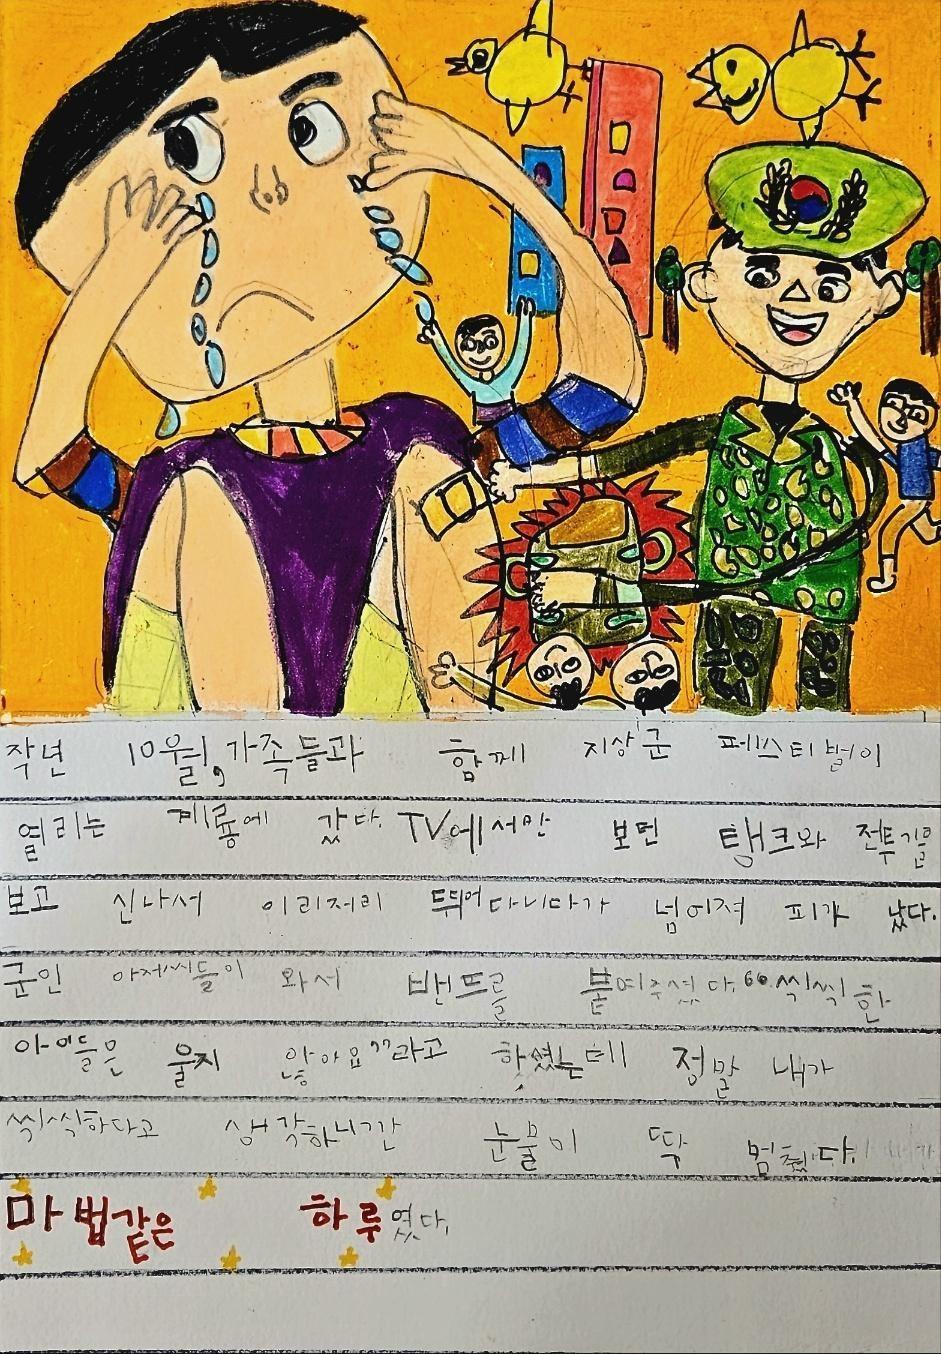 작년 10월, 가족들과 함께 지상군 페스티벌이
열리는 계룡에 갔다. TV에서만 보던 탱크와 전투기를
보고 신나서 이리저리 뛰어다니다가 넘어져 피가 났다.
군인 아저씨들이 와서 밴드를 붙여주셨다. "씩씩한
아이들은 울지 않아요"라고 하셨는데 정말 내가
씩씩하다고 생각하니간 눈물이 딱 멈췄다.
마법같은 하루였다.